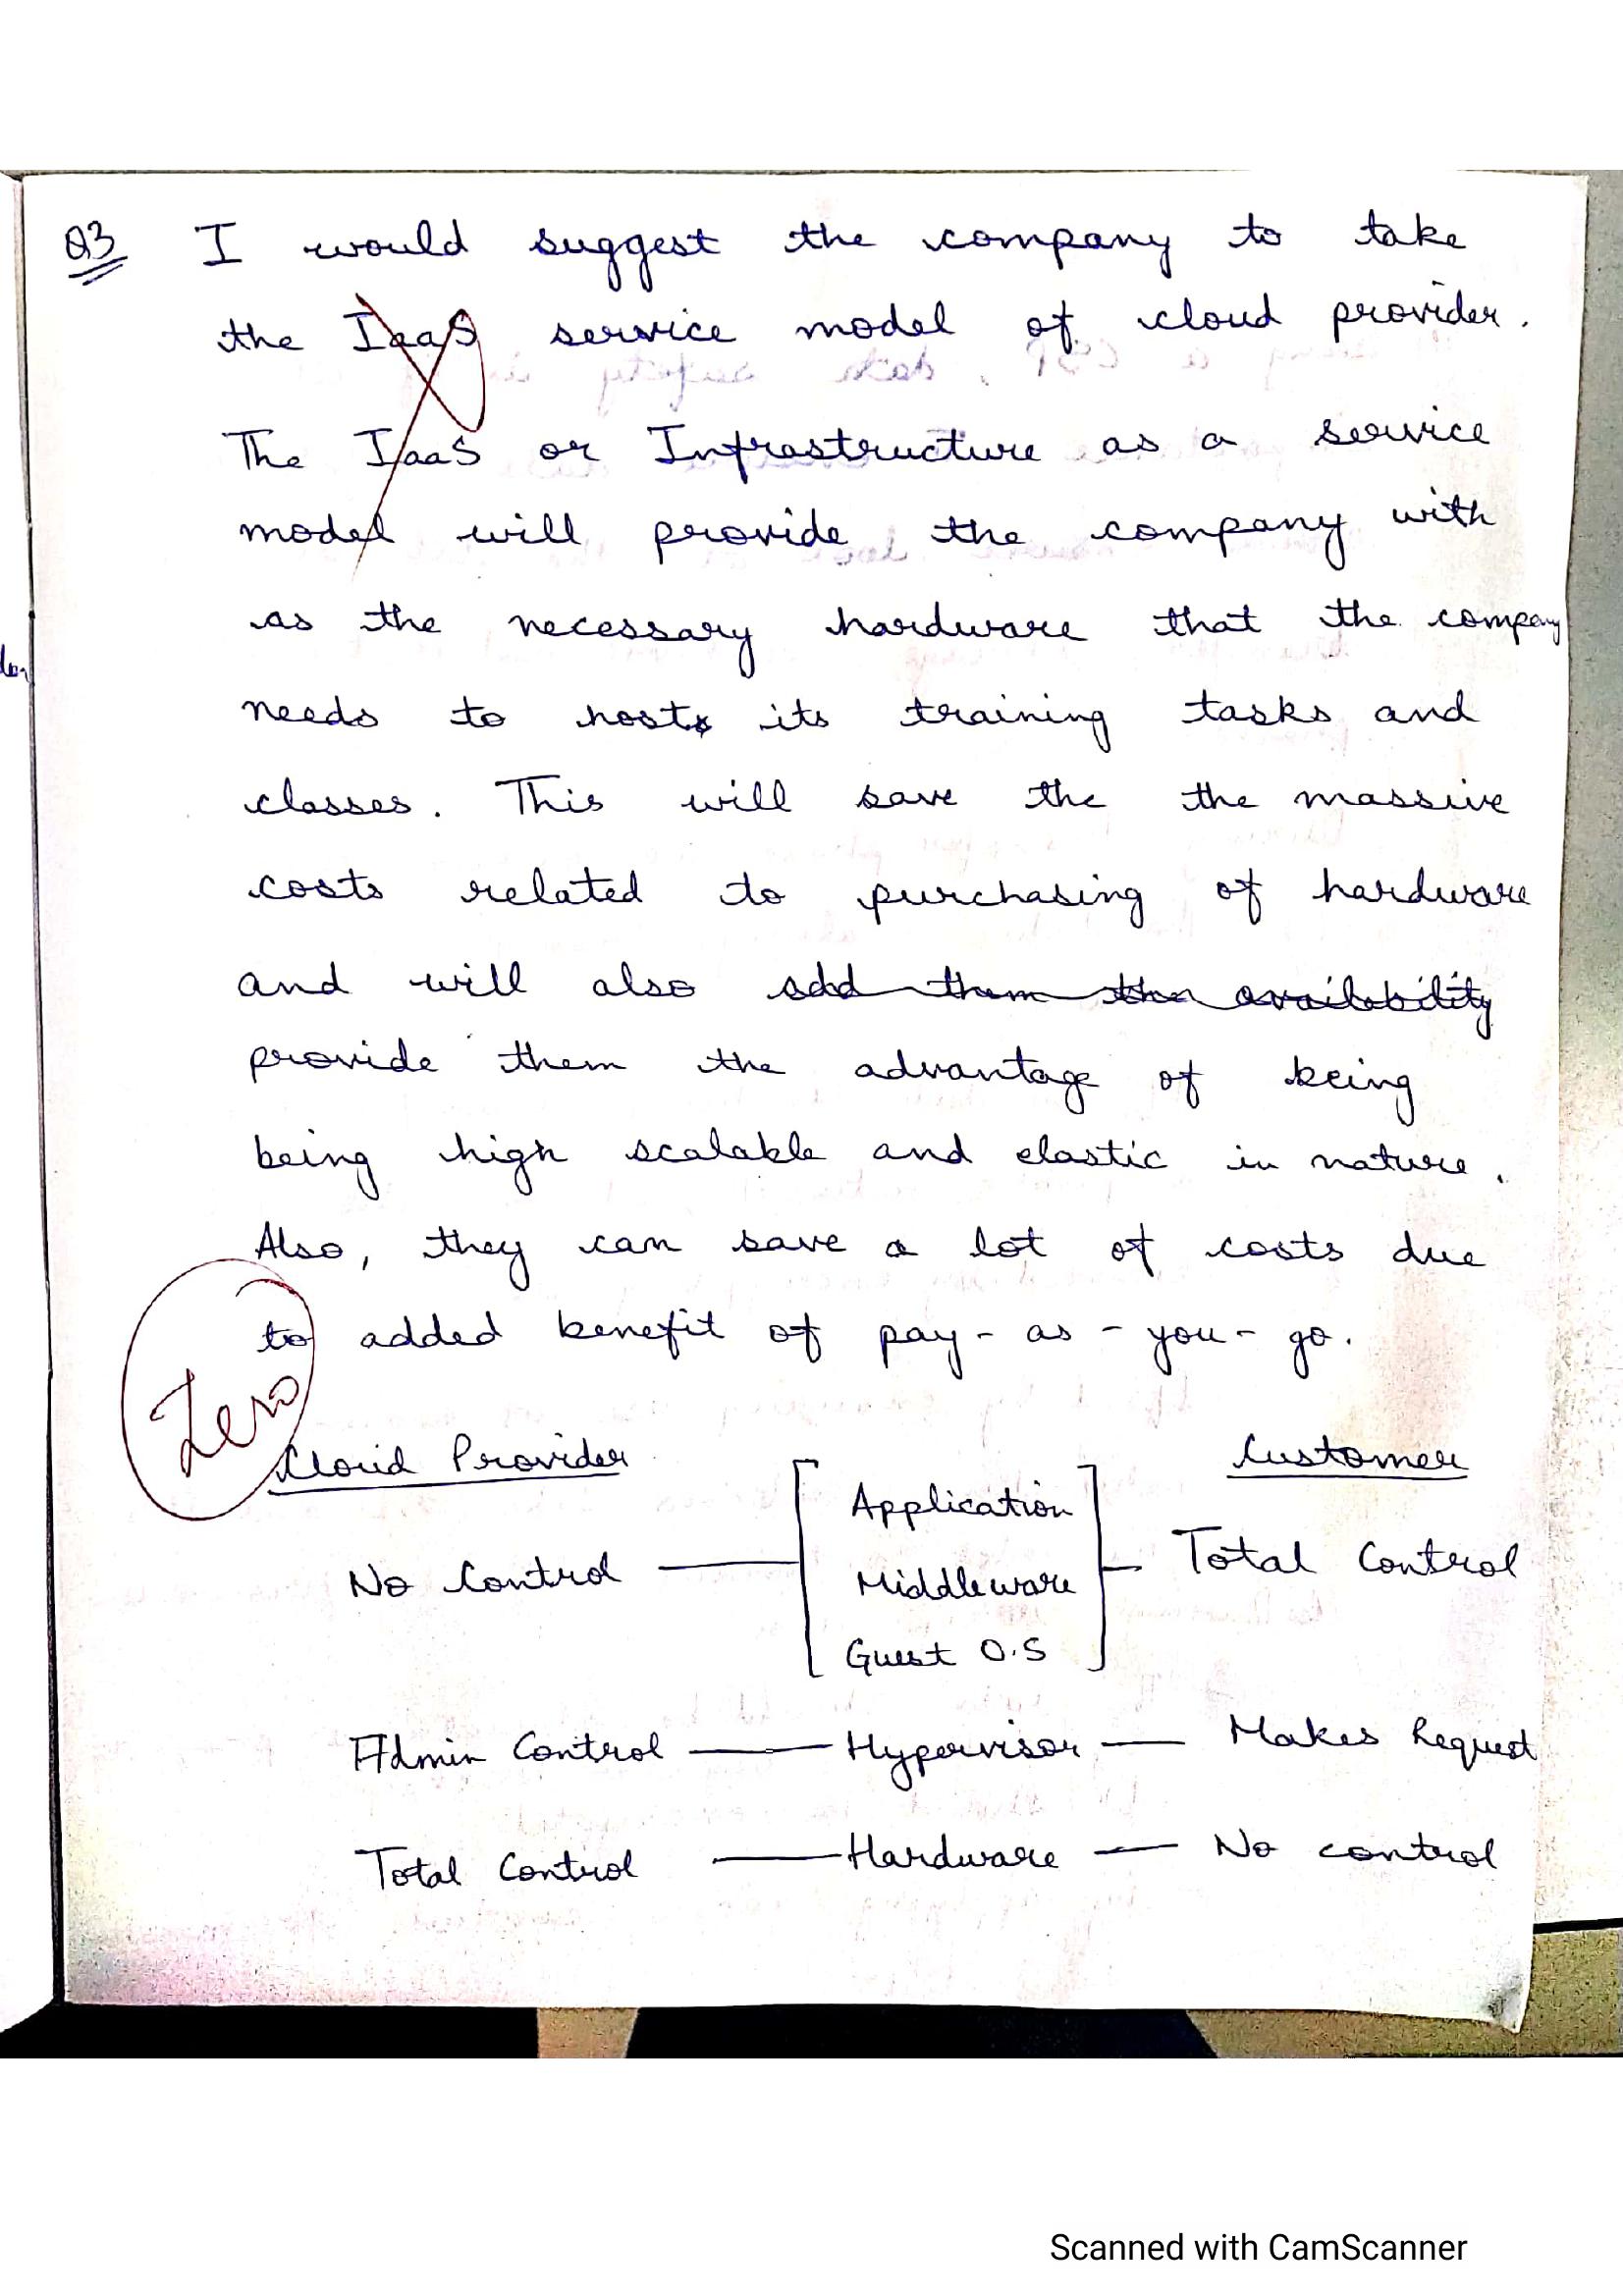 Q3 I would suggest the company to take
the IaaS service model of cloud provider.
The IaaS or Infrastructure as a service
model will provide the company with
as the necessary hardware that the company
needs to host its training tasks and
classes. This will save the the massive
costs related to purchasing of hardware
and will also add them the availability
provide them the advantage of being
being high scalable and elastic in nature.
Also, they can save a lot of costs due
to added benefit of pay-as-you-go.
Zero
Cloud Provider Customer
Application
No Control Middleware Total Control
Guest O.S
Admin Control Hypervisor Makes Request
Total Control Hardware No control
Scanned with CamScanner